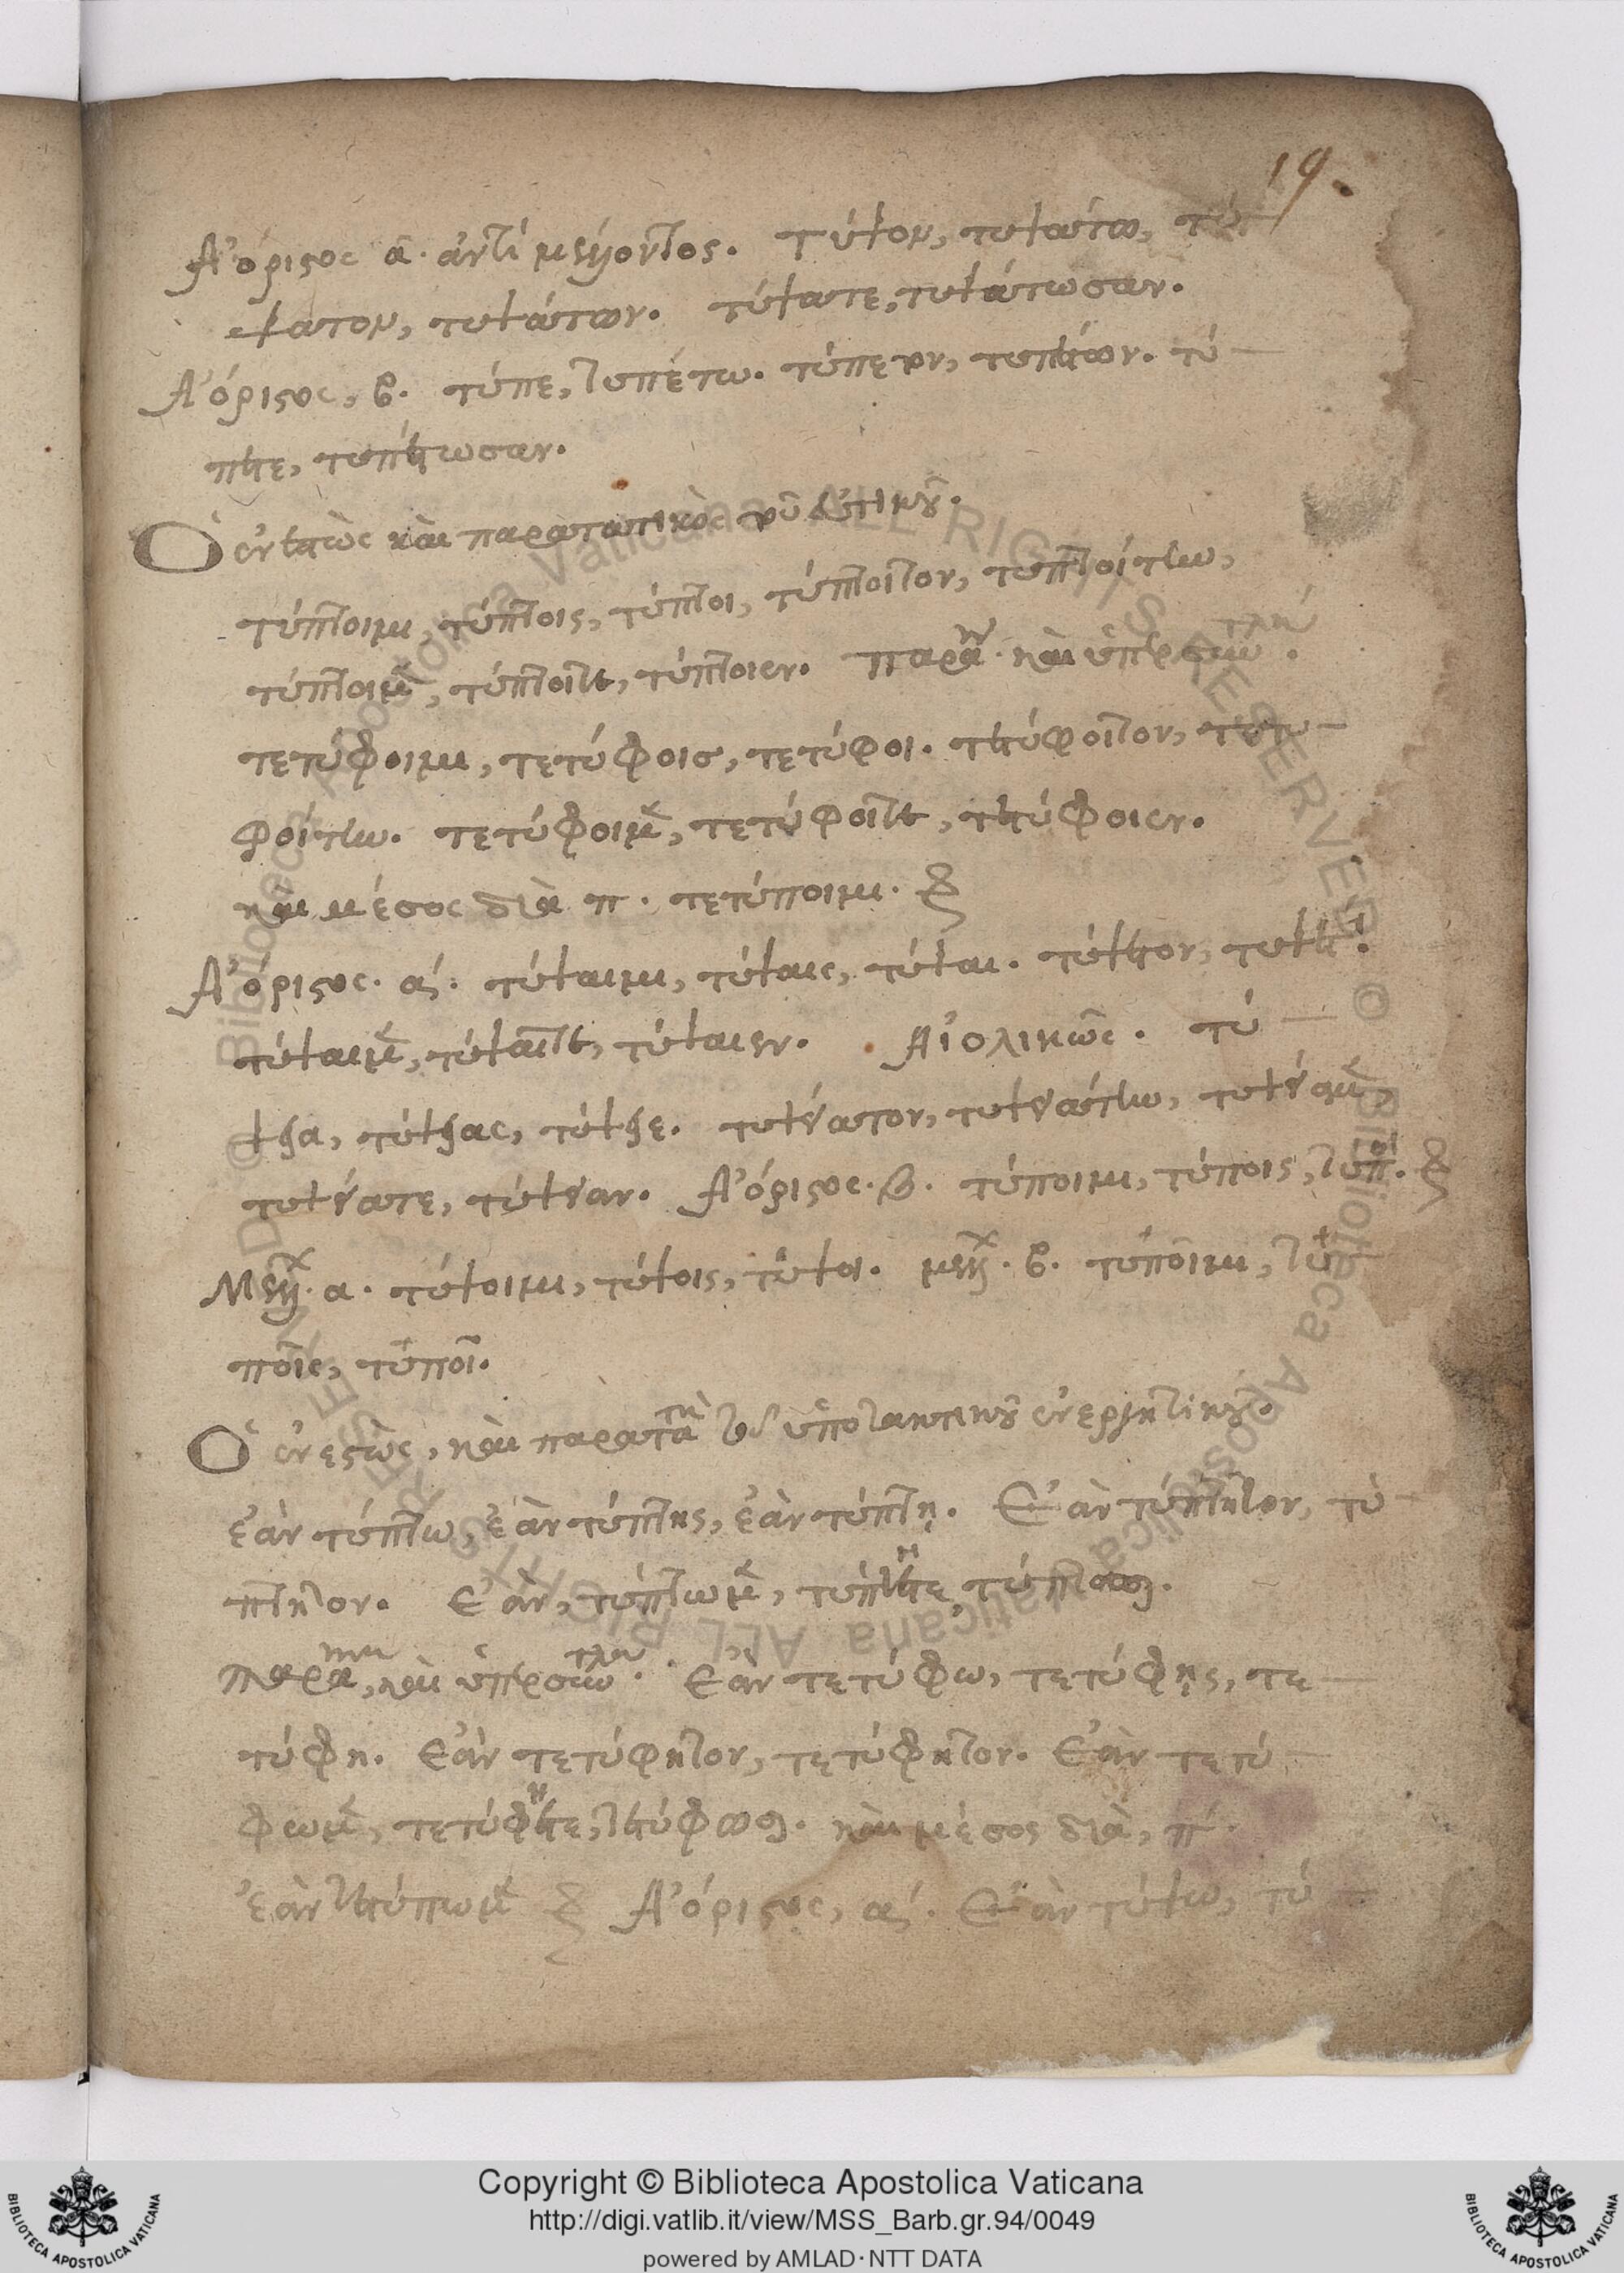 19.
Ἀόριστος α. ἀντὶ μέλλοντος. τύψον, τυψάτω, τύ-
ψατον, τυψάτων. τύψατε, τυψάτωσαν.
Ἀόριστος, β. τύπε, τυπέτω. τύπετον, τυπέτων. τύ-
πετε, τυπέτωσαν.
Ὁ ἐνεστὼς καὶ παρατατικὸς τοῦ εὐκτικοῦ.
τύπτοιμι, τύπτοις, τύπτοι, τύπτοιτον, τυπτοίτην,
τύπτοιμεν, τύπτοιτε, τύπτοιεν. παρα καὶ ὑπερσυντελι.
τετύφοιμι, τετύφοισ, τετύφοι. τετύφοιτον, τετυ-
φοίτην. τετύφοιμεν, τετύφοιτε, τετύφοιεν.
καὶ μέσος διὰ π. τετύποιμι.
Ἀόριστος. α. τύψαιμι, τύψαις, τύψαι. τύψετον, τυψετ.
τύψαιμεν, τύψαιτε, τύψαιεν. Αἰολικῶς. τύ-
ψεια, τύψειας, τύψειε. τυψείατον, τυψειάτην, τυψείαμεν,
τυψείατε, τύψειαν. Ἀόριστος. β. τύποιμι, τύποις, τύποι.
Μέλλ. α. τύψοιμι, τύψοις, τύψοι. μέλλ. β. τυποῖμι, τυ
ποῖς, τυποῖ.
Ὁ ἐνεστὼς, καὶ παρατατικὸς τοῦ ὑποτακτικοῦ ἐνεργητικοῦ.
ἐὰν τύπτω, ἐὰν τύπτης, ἐὰν τύπτῃ. Ἐὰν τύπτητον, τύ-
πτητον. Ἐὰν, τύπτωμεν, τύπτητε, τύπτωσι.
παρα, καὶ ὑπερσυντελι. Ἐὰν τετύφω, τετύφῃς, τε-
τύφη. Ἐὰν τετύφητον, τετύφητον. Ἐὰν τετύ-
φωμεν, τετύφητε, τετύφωσι. καὶ μέσος διὰ, π.
ἐὰν τετύπωμεν Ἀόριστος, α. Ἐὰν τύψω, τύ-
Copyright © Biblioteca Apostolica Vaticana
http://digi.vatlib.it/view/MSS_Barb.gr.94/0049
powered by AMLAD·NTT DATA
BIBLIOTECA APOSTOLICA VATICANA
BIBLIOTECA APOSTOLICA VATICANA